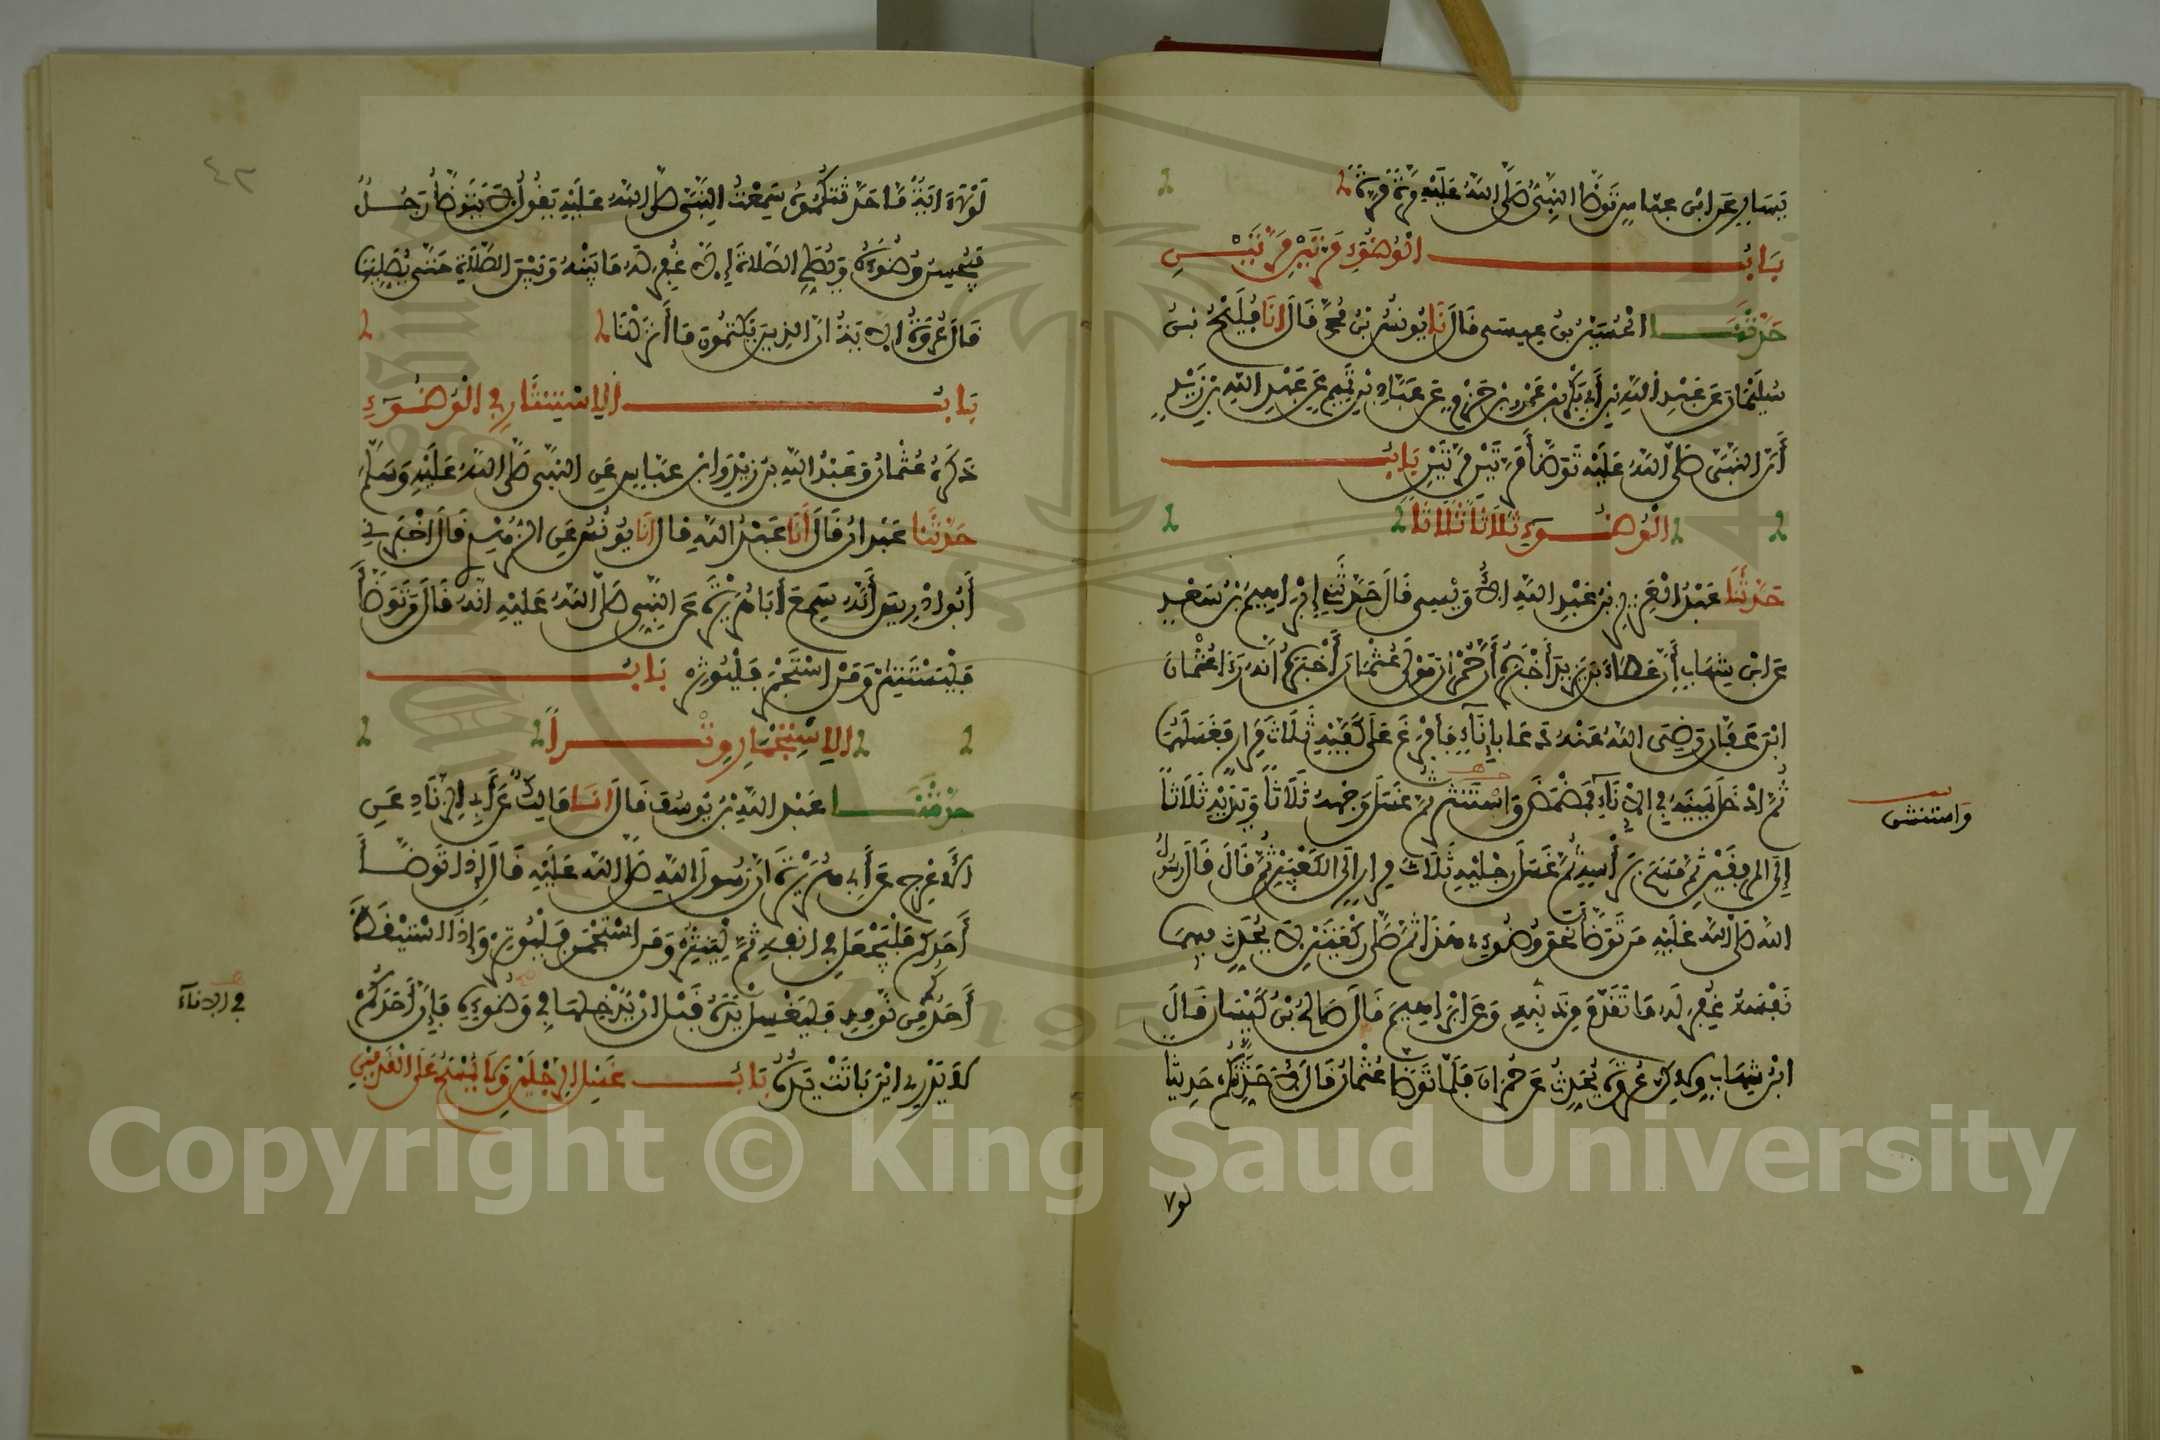 يَسارٍ عَنِ ابْنِ عبّاسٍ تَوَضَّأ النبِيُّ صَلَّى اللّٰهُ عَلَيْهِ مَرَّةً مَرَّةً
بَابُ الْوُضُوءِ مَرَّتَيْنِ مَرَّتَيْنِ
حَدَّثَنَا الْحُسَيْنُ بنُ عِيسَى قالَ نَا يُونُسُ بْنُ مُحَمَّدٍ قالَ انَا فُلَيْحُ بنُ
سُلَيْمٰنَ عَن عَبْدِ اللّٰهِ بنِ أبي بَكْرِ بْنِ عَمْرِو بْنِ حَزْمٍ عَن عَبَّادِ بْنِ تَمِيمٍ عَن عَبْدِ اللّٰهِ بْنِ زَيْدٍ
أَنَّ النَّبِيَّ صَلَّى اللّٰهُ عَلَيْهِ تَوَضَّأَ مَرَّتَيْنِ مَرَّتَيْنِ بَابُ
الْوُضُوءِ ثَلَاثًا ثَلَاثًا
حَدَّثَنَا عَبْدُ الْعَزِيزِ بْنُ عَبْدِ اللّٰهِ الأُوَيْسِي قَالَ حَدَّثَنِي إبْرَاهِيمُ بْنُ سَعْدٍ
عَنِ ابْنِ شِهَابٍ أَنَّ عَطَاءَ بْنَ يَزِيدَ أَخْبَرَهُ أَنَّ حُمْرَانَ مَوْلَى عُثْمَانَ أَخْبَرَهُ أَنَّهُ رَءَا عُثْمَانَ
ابْنَ عَفَّانَ رَضِيَ اللّٰهُ عَنْهُ دَعَا بِإِنَآءٍ فَأَفْرَغَ عَلَى كَفَّيْهِ ثَلَاثَ مِرَارٍ فَغَسَلَهُمَا
ثُمَّ ادْخَلَ يَمِينَهُ فِي الاِنَآءِ فَمَضْمَضَ وَاسْتَنْثَرَ ثمَّ غَسَلَ وَجْهَهُ ثَلَاثًا وَيَدَيْهِ ثَلَاثًا
واستنشق
إِلَى المِرْفَقَيْنِ ثمَّ مَسَحَ بِرَأْسِهِ ثمَّ غَسَلَ رِجْلَيْهِ ثَلَاثَ مِرارٍ إِلَى الكَعْبَيْنِ ثمَّ قَالَ قَالَ رَسُولُ
اللّٰهِ صَلَّى اللّٰهُ عَلَيْهِ مَن تَوَضَّأَ نَحْوَ وُضُوءِي هٰذَا ثمَّ صَلَّى رَكْعَتَيْنِ لَا يُحَدِّثُ فِيهِمَا
نَفْسَهُ غُفِرَ لَهُ مَا تَقَدَّمَ مِن ذَنبِهِ وَعَنِ ابْرَاهِيمَ قَالَ صَالِحُ بْنُ كَيْسَانَ قَالَ
ابْنُ شِهَابٍ وَلٰكِنْ عُرْوَةُ يُحَدِّثُ عَن حُمْرَانَ فَلَمَّا تَوَضَّأَ عُثْمَانُ قَالَ لَأُحَدِّثَنَّكُمْ حَدِيثًا
لو٧
٤٢
لَوْلَا ءَايَةٌ مَا حَدَّثْتُكُمُوهُ سَمِعْتُ النَّبِيَّ صَلَّى اللّٰهُ عَلَيْهِ يَقُولُ لَا يَتَوَضَّأُ رَجُلٌ
فَيُحْسِنُ وُضُوءَهُ وَيُصَلِّي الصَّلَاةَ إِلَّا غُفِرَ لَهُ مَا بَيْنَهُ وَبَيْنَ الصَّلَاةِ حَتَّى يُصَلِّيَهَا
قَالَ عُرْوَةُ الَايَةُ انَّ الذِينَ يَكْتُمُونَ مَا أَنزَلْنَا
بَابُ الِاسْتِنْثَارِ فِي الْوُضُوءِ
ذَكَرَهُ عُثْمَانُ وَعَبْدُ اللّٰهِ بْنُ زَيْدٍ وَابْنُ عَبَّاسٍ عَنِ النَّبِيِّ صَلَّى اللّٰهُ عَلَيْهِ وَسَلَّمَ
حَدَّثَنَا عَبْدَانُ قَالَ أَنَا عَبْدُ اللّٰهِ قال انَا يُونُسُ عَنِ الزُّهْرِيِّ قَالَ اخْبَرَنِي
أَبُو ادْرِيسَ أَنَّهُ سَمِعَ أَبَا هُرَيْرَةَ عَنِ النَّبِيِّ صَلَّى اللّٰهُ عَلَيْهِ انَّهُ قَالَ مَن تَوَضَّأَ
فَلْيَسْتَنْثِرْ وَمَنِ اسْتَجْمَرَ فَلْيُوتِرْ بَابُ
الِاسْتِجْمَارِ وِتْرًا
حَدَّثَنَا عَبْدُ اللّٰهِ بْنُ يُوسُفَ قَالَ انَا مَالِكٌ عَن أَبِي الزِّنَادِ عَنِ
الأَعْرَجِ عَن أَبِي هُرَيْرَةَ أَنَّ رَسُولَ اللّٰهِ صَلَّى اللّٰهُ عَلَيْهِ قَالَ إِذَا تَوَضَّأَ
أَحَدُكُمْ فَلْيَجْعَلْ فِي انفِهِ ثُمَّ لْيَنْثُرْ وَمَنِ اسْتَجْمَرَ فَلْيُوتِرْ وَإِذَا اسْتَيْقَظَ
أَحَدُكُم مِن نَّوْمِهِ فَلْيَغْسِلْ يَدَهُ قَبْلَ انْ يُدْخِلَهَا فِي وَضُوئِهِ فَإِنَّ أَحَدَكُمْ
في الاناء
لَا يَدْرِي ايْنَ بَاتَتْ يَدُهُ بَابُ غَسْلِ الرِّجْلَيْنِ وَلَا يُمْسَحُ عَلَى الْقَدَمَيْنِ
Copyright © King Saud University
1957